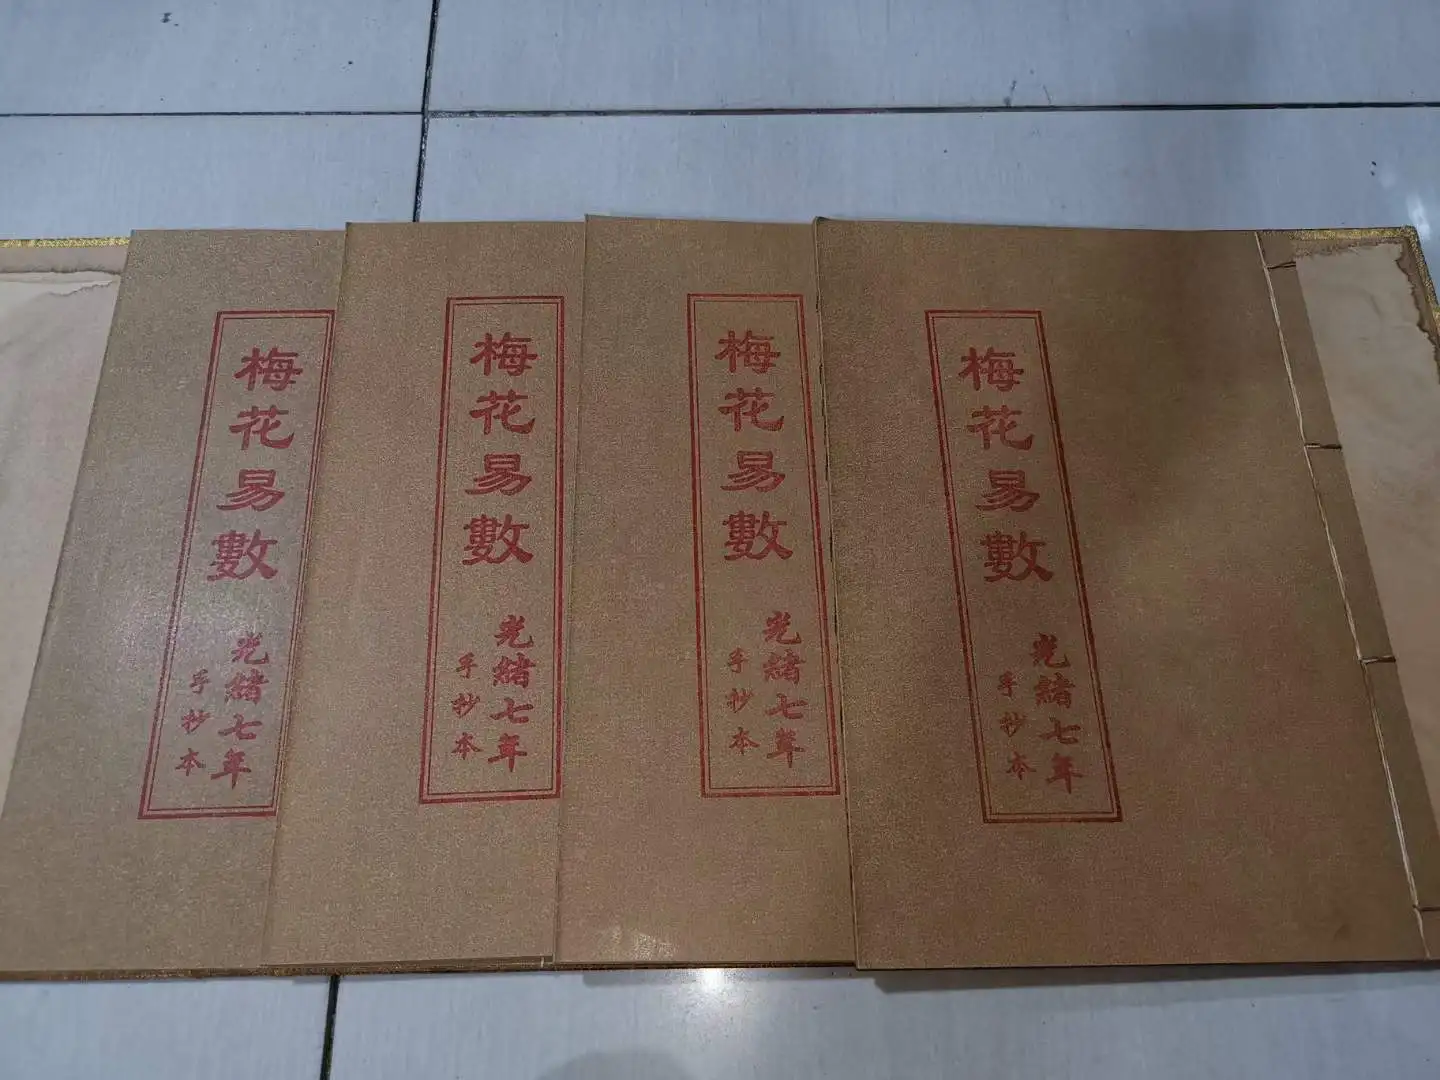 梅花易數
光緒七年
手抄本
梅花易數
光緒七年
手抄本
梅花易數
光緒七年
手抄本
梅花易數
光緒七年
手抄本